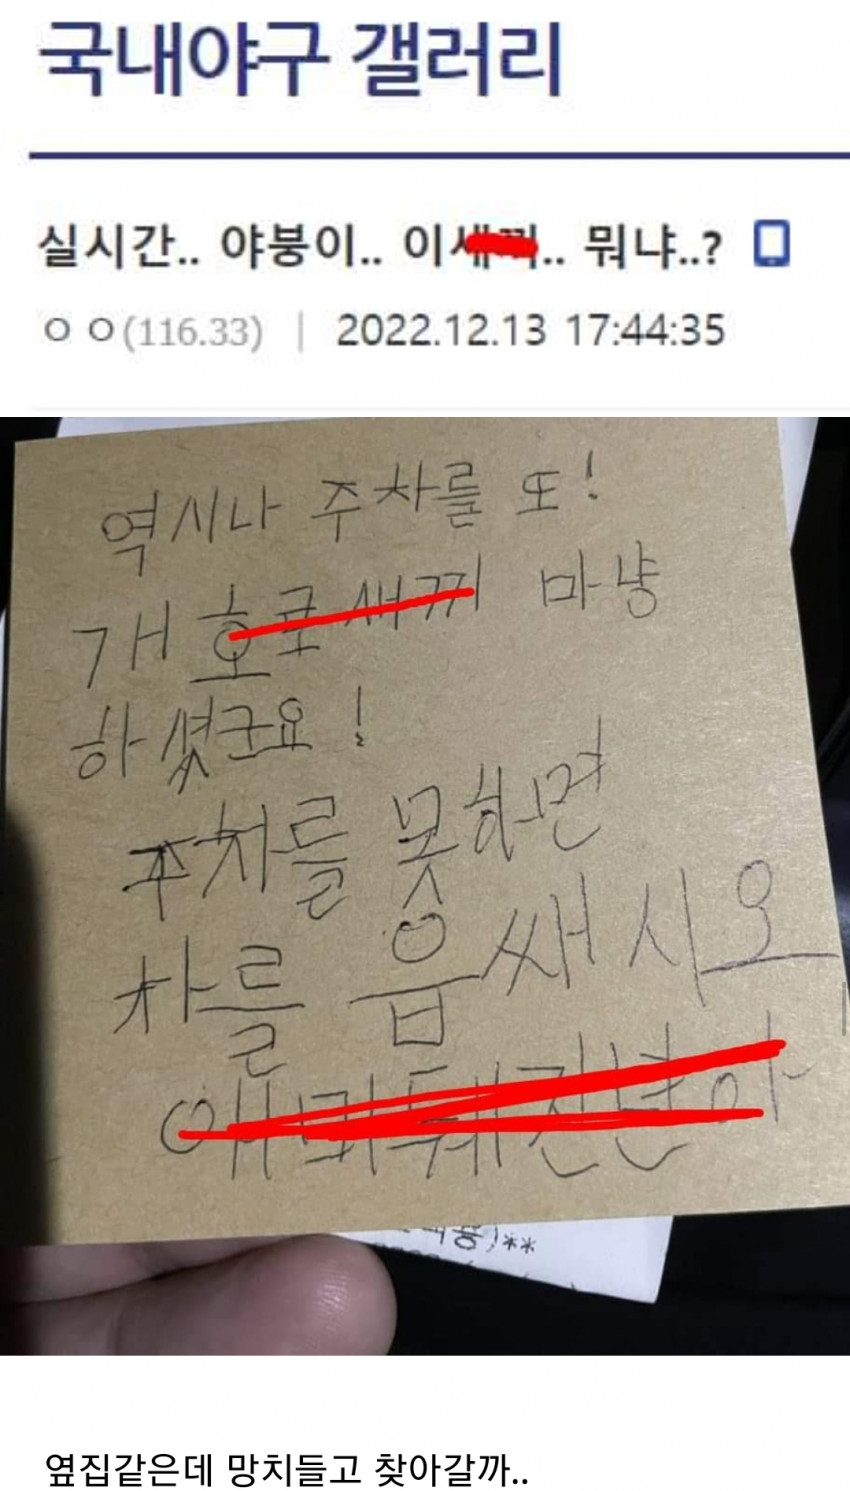 국내야구 갤러리
실시간.. 야붕이.. 이새끼.. 뭐냐..?
ㅇㅇ(116.33) | 2022.12.13 17:44:35
역시나 주차를 또!
개 호로새끼 마냥
하셨군요!
주차를 못하면
차를 읍쌔시오
애미뒤진년아
옆집같은데 망치들고 찾아갈까..